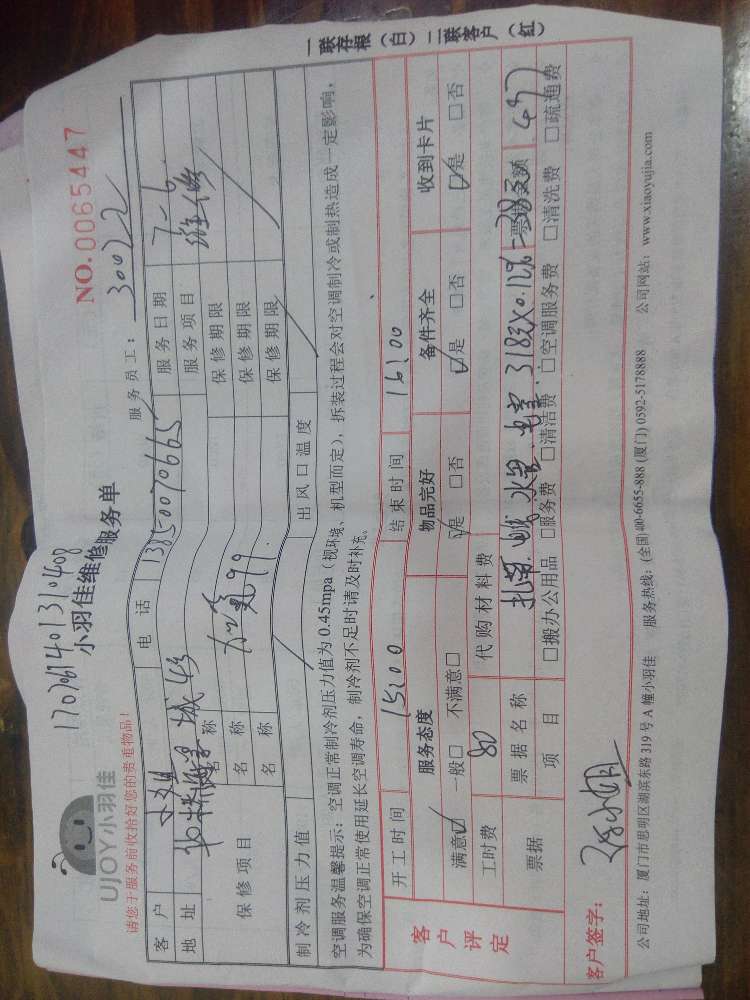 一联存根（白）二联客户（红）
NO.0065447
1707061401310408
UJOY小羽佳
小羽佳维修服务单
请您于服务前收拾好您的贵重物品!
服务员工： 30022
客户 小姐 电话 13850070665 服务日期 7-6
地址 服务项目 维修
保修项目 名称 保修期限
名称 保修期限
名称 保修期限
制冷剂压力值 出风口温度
空调服务温馨提示：空调正常制冷剂压力值为0.45mpa（视环境、机型而定），拆装过程会对空调制冷或制热造成一定影响，
为确保空调正常使用延长空调寿命，制冷剂不足时请及时补充。
客户评定
开工时间 15:00 结束时间 16:00
服务态度 物品完好 备件齐全 收到卡片
满意☑ 一般□ 不满意□ ☑是 □否 ☑是 □否 ☑是 □否
工时费 80 代购材料费
票据 票据名称 票据金额
项目 □搬办公用品 □服务费 □清洁费 □空调服务费 □清洗费 □疏通费
客户签字：
公司地址：厦门市思明区湖滨东路319号A幢小羽佳 服务热线：(全国)400-6655-888 (厦门) 0592-5178888 公司网站：www.xiaoyujia.com